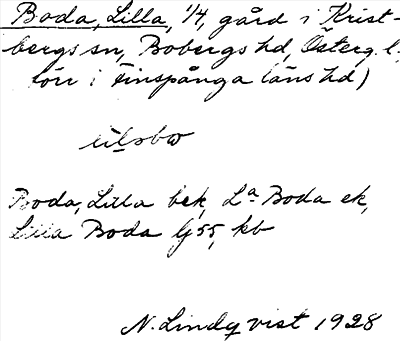 Boda, Lilla, 1/4, gård i Krist-
bergs sn, Bobergs hd, Österg. l.
(örr i Finspånga läns hd)
lilsbo
Boda, Lilla bek, La Boda ek,
Lilla Boda Gj 55, kb
N. Lindqvist 1928